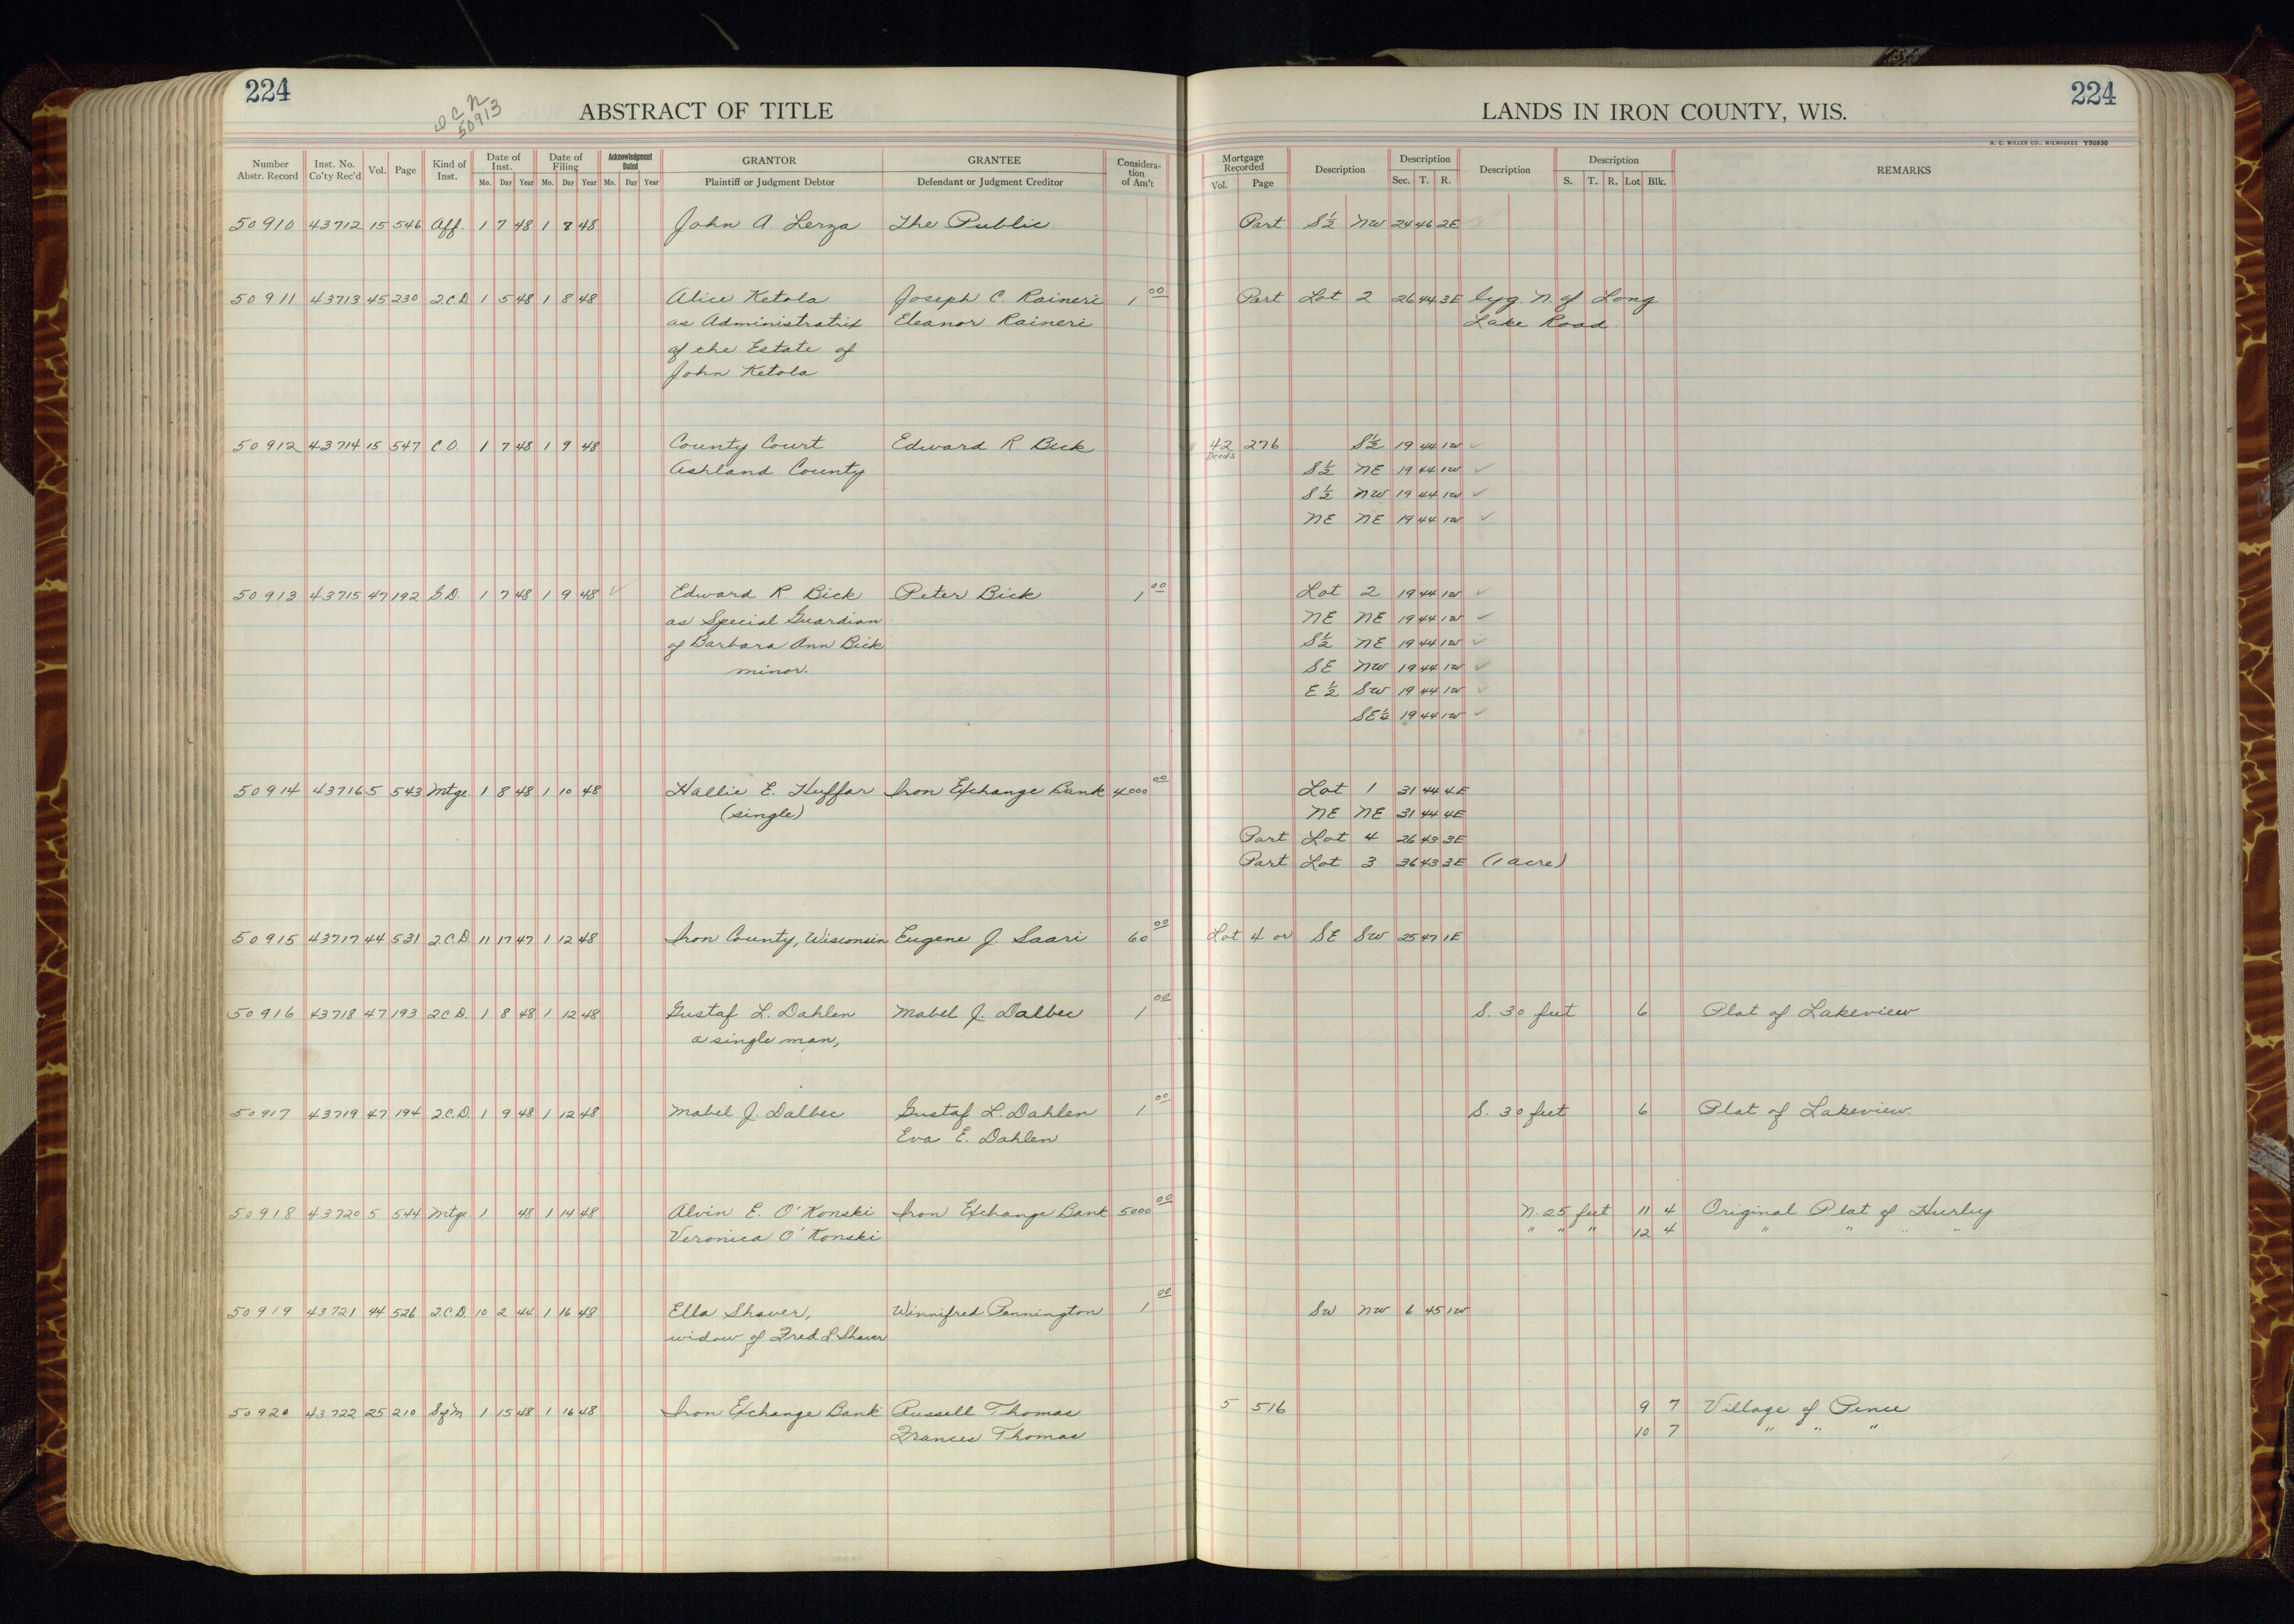 224
D C N
50913
ABSTRACT OF TITLE
LANDS IN IRON COUNTY, WIS.
224
H. C. MILLER CO., MILWAUKEE Y50930
Number Abstr. Record Inst. No. Co'ty Rec'd Vol. Page Kind of Inst. Date of Inst. Mo. Day Year Date of Filing Mo. Day Year Acknowledgment Dated Mo. Day Year GRANTOR Plaintiff or Judgment Debtor GRANTEE Defendant or Judgment Creditor Considera-tion of Am't Mortgage Recorded Vol. Page Description Description Sec. T. R. Description Description S. T. R. Lot Blk. REMARKS
50910 43712 15 546 Aff. 1 7 48 1 8 48 John A. Lerza The Public Part S½ NW 24 46 2E
50911 43713 45 230 2.C.D 1 5 48 1 8 48 Alice Ketola Joseph C Raineri 1 00 Part Lot 2 26 44 3E lyg. N. of Long
as Administratrix Eleanor Raineri Lake Road.
of the Estate of
John Ketola
50912 43714 15 547 C.O. 1 7 48 1 9 48 County Court Edward R. Bick 42 276 S½ 19 44 1W ✓
Deeds
Ashland County S½ NE 19 44 1W ✓
S½ NW 19 44 1W ✓
NE NE 19 44 1W ✓
50913 43715 47 192 G.D. 1 7 48 1 9 48 ✓ Edward R. Bick Peter Bick 1 00 Lot 2 19 44 1W ✓
as Special Guardian NE NE 19 44 1W ✓
of Barbara Ann Bick S½ NE 19 44 1W ✓
minor. SE NW 19 44 1W ✓
E½ SW 19 44 1W ✓
SE¼ 19 44 1W ✓
50914 43716 5 543 Mtge 1 8 48 1 10 48 Hallie E. Huffar Iron Exchange Bank 4000 00 Lot 1 31 44 4E
(single) NE NE 31 44 4E
Part Lot 4 26 43 3E
Part Lot 3 36 43 3E (1 acre)
50915 43717 44 531 2.C.D 11 17 47 1 12 48 Iron County, Wisconsin Eugene J. Saari 60 00 Lot 4 or SE SW 25 47 1E
50916 43718 47 193 2.C.D. 1 8 48 1 12 48 Gustaf L. Dahlen Mabel J. Dalbec 1 00 S. 30 feet 6 Plat of Lakeview
a single man,
50917 43719 47 194 2.C.D. 1 9 48 1 12 48 Mabel J. Dalbec Gustaf L. Dahlen 1 00 S. 30 feet 6 Plat of Lakeview.
Eva E. Dahlen
50918 43720 5 544 Mtge 1 48 1 14 48 Alvin E. O'Konski Iron Exchange Bank 5000 00 N. 25 feet 11 4 Original Plat of Hurley
Veronica O'Konski " " " 12 4 " " " "
50919 43721 44 526 2.C.D. 10 2 44 1 16 48 Ella Shaver, Winnifred Pennington 1 00 SW NW 6 45 1W
widow of Fred L. Shaver
50920 43722 25 210 SofM 1 15 48 1 16 48 Iron Exchange Bank Russell Thomas 5 516 9 7 Village of Pence
Frances Thomas 10 7 " " "